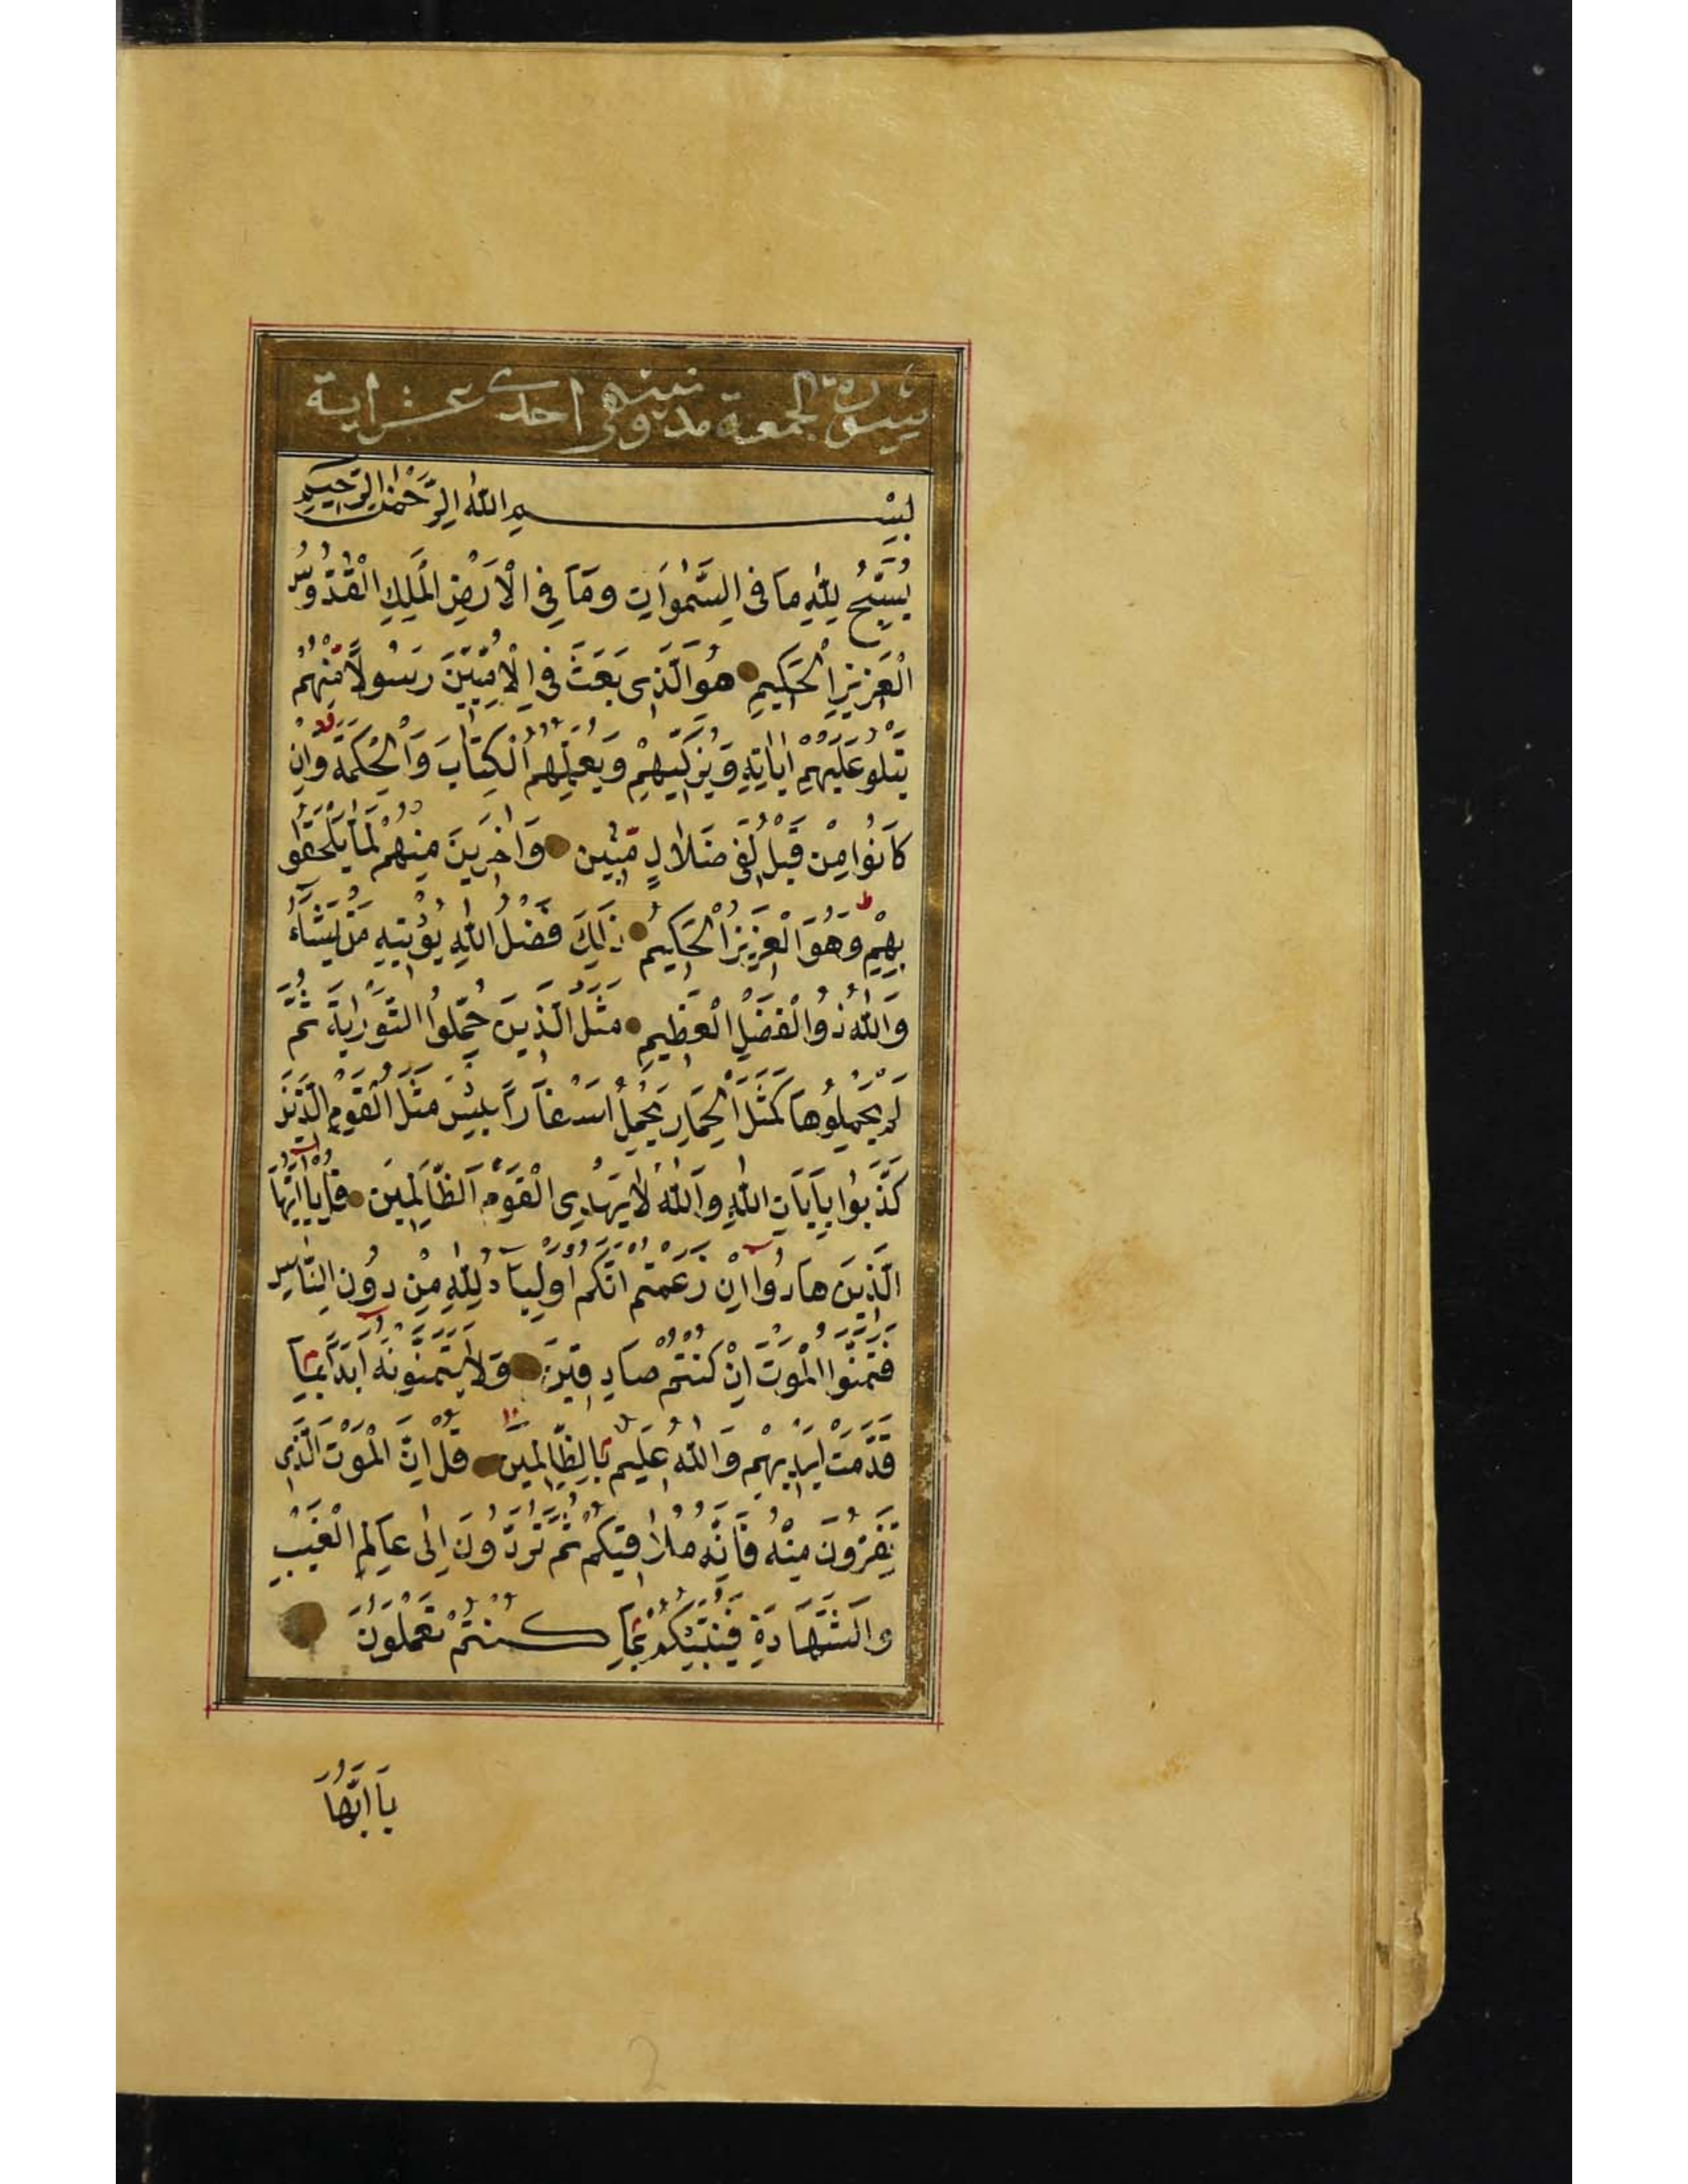 سورة الجمعة مدنية وهى احدى عشر اية
بِسْمِ اللّٰهِ الرَّحْمٰنِ الرَّحِيمِ
يُسَبِّحُ لِلّٰهِ مَا فِى السَّمٰوَاتِ وَمَا فِى الْاَرْضِ الْمَلِكِ الْقُدُّوسِ
الْعَزِيزِ الْحَكِيمِ هُوَ الَّذِى بَعَثَ فِى الْاُمِّيِّينَ رَسُولًا مِنْهُمْ
يَتْلُو عَلَيْهِمْ اٰيَاتِهِ وَيُزَكِّيهِمْ وَيُعَلِّمُهُمُ الْكِتَابَ وَالْحِكْمَةَ وَاِنْ
كَانُوا مِنْ قَبْلُ لَفِى ضَلَالٍ مُبِينٍ وَاٰخَرِينَ مِنْهُمْ لَمَّا يَلْحَقُوا
بِهِمْ وَهُوَ الْعَزِيزُ الْحَكِيمُ ذٰلِكَ فَضْلُ اللّٰهِ يُؤْتِيهِ مَنْ يَشَاءُ
وَاللّٰهُ ذُو الْفَضْلِ الْعَظِيمِ مَثَلُ الَّذِينَ حُمِّلُوا التَّوْرٰيةَ ثُمَّ
لَمْ يَحْمِلُوهَا كَمَثَلِ الْحِمَارِ يَحْمِلُ اَسْفَارًا بِئْسَ مَثَلُ الْقَوْمِ الَّذِينَ
كَذَّبُوا بِاٰيَاتِ اللّٰهِ وَاللّٰهُ لَا يَهْدِى الْقَوْمَ الظَّالِمِينَ قُلْ يَا اَيُّهَا
الَّذِينَ هَادُوا اِنْ زَعَمْتُمْ اَنَّكُمْ اَوْلِيَاءُ لِلّٰهِ مِنْ دُونِ النَّاسِ
فَتَمَنَّوُا الْمَوْتَ اِنْ كُنْتُمْ صَادِقِينَ وَلَا يَتَمَنَّوْنَهُ اَبَدًا بِمَا
قَدَّمَتْ اَيْدِيهِمْ وَاللّٰهُ عَلِيمٌ بِالظَّالِمِينَ قُلْ اِنَّ الْمَوْتَ الَّذِى
تَفِرُّونَ مِنْهُ فَاِنَّهُ مُلَاقِيكُمْ ثُمَّ تُرَدُّونَ اِلٰى عَالِمِ الْغَيْبِ
وَالشَّهَادَةِ فَيُنَبِّئُكُمْ بِمَا كُنْتُمْ تَعْمَلُونَ
يَا اَيُّهَا
2